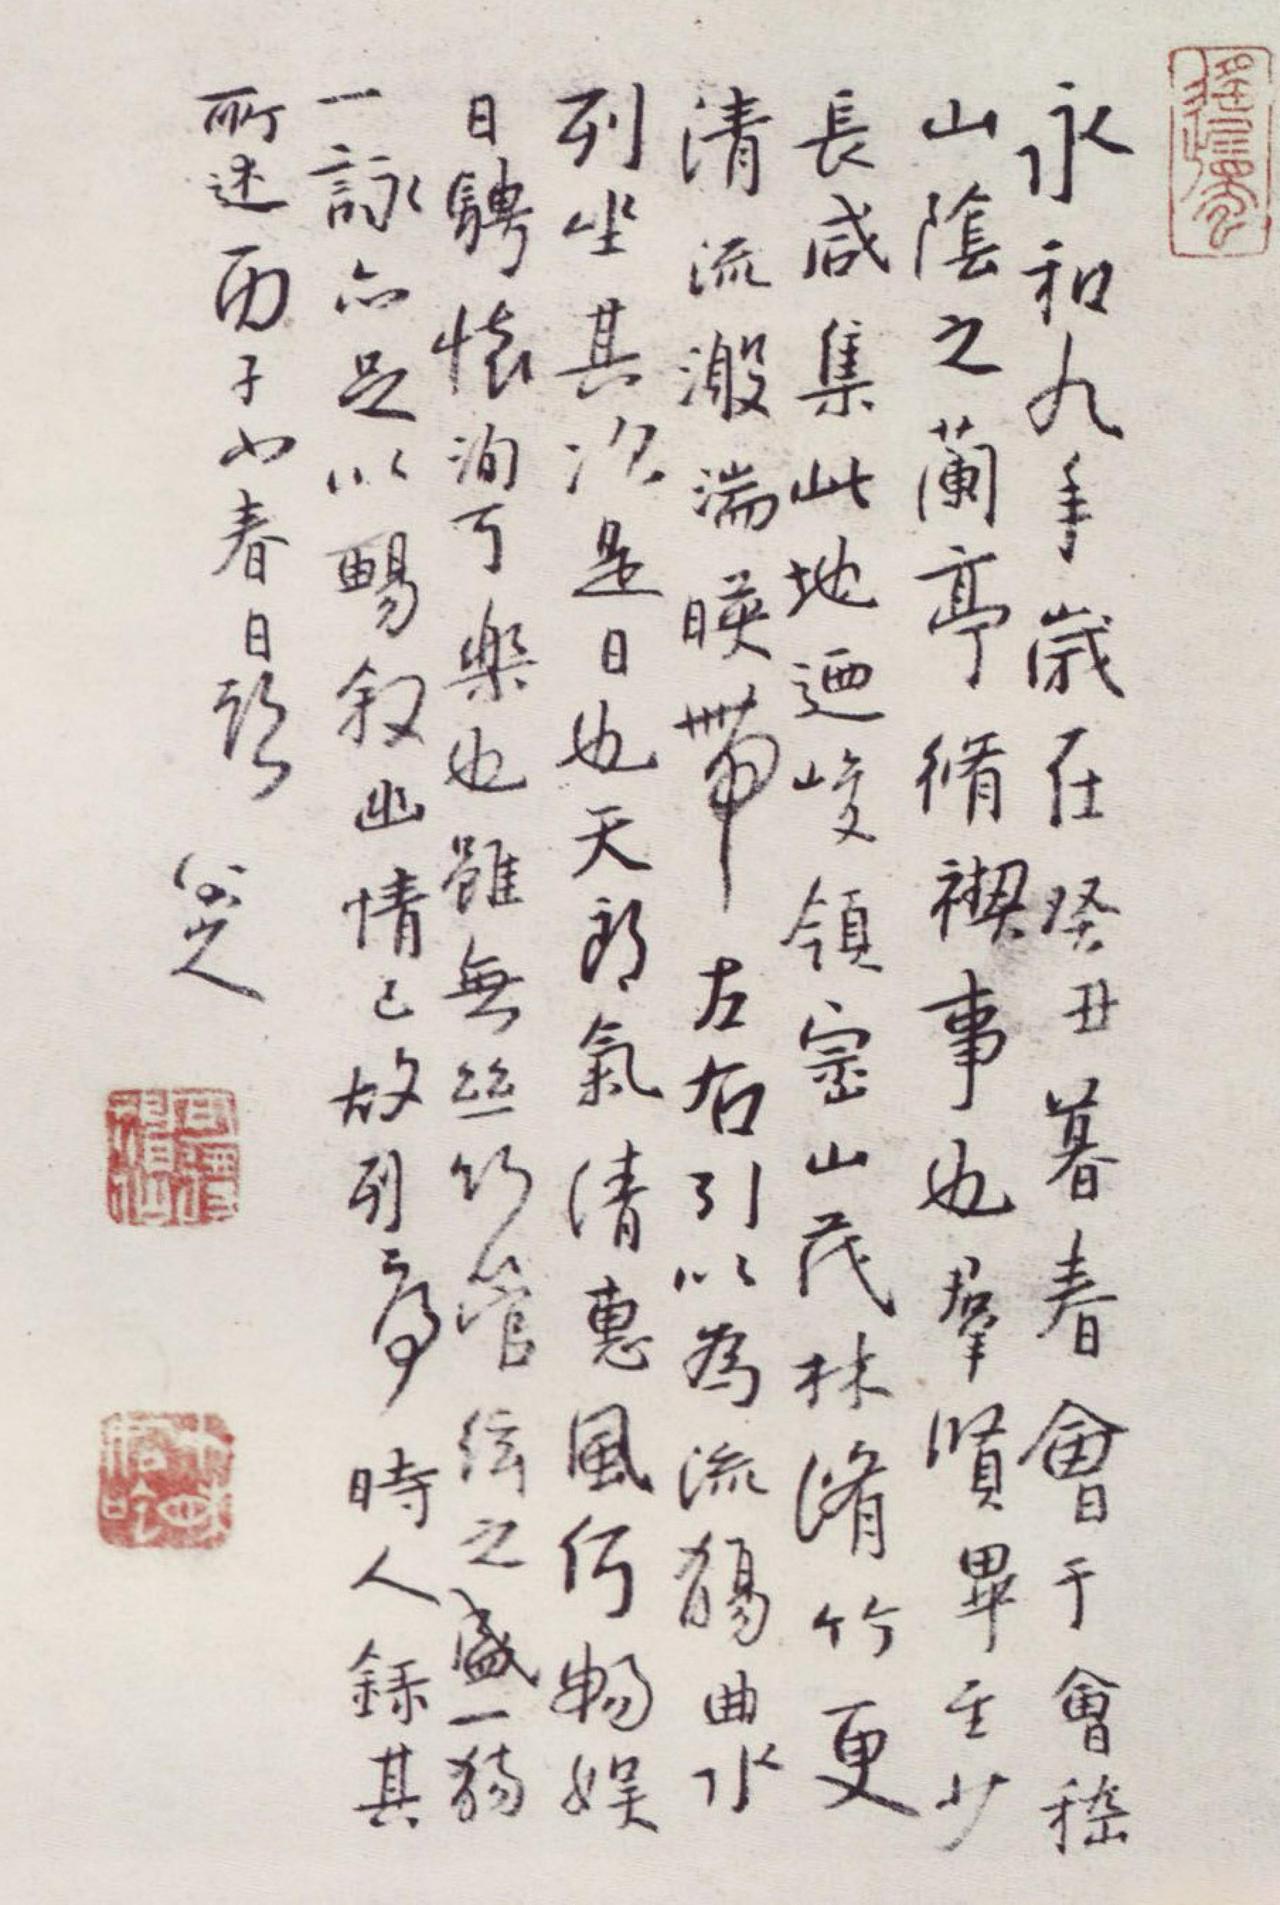 永和九年歲在癸丑暮春會于會嵇
山陰之蘭亭脩禊事也羣賢畢至少
長咸集此地迺峻領崇山茂林脩竹更
清流激湍暎帶左右引以為流觴曲水
列坐其次是日也天朗氣清惠風何暢娛
日騁懷洵可樂也雖無絲竹管弦之盛一觴
一詠亦足以暢叙幽情已故列序時人錄其
所述丙子小春日題
八大山人
可得神仙